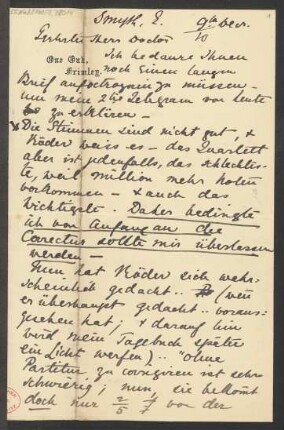 Smyth, E. 9th Decr.
10
Geehrter Herr Doctor
Ich bedaure Ihnen
One Oak,
Frimley.
noch einen langen
Brief aufoctroyiren zu müssen -
um mein 2tes Telegram von heute
zu erklären -
Die Stimmen sind nicht gut, &
Röder weiss es - das Quartett
aber ist jedenfalls, das schlechtes-
te, weil million mehr Noten
vorkommen - & auch das
wichtigste. Daher bedingte
ich von Anfang an die
Correctur sollte mir überlassen
werden -
Nun hat Röder sich wahr-
scheinlich gedacht .. (wenn
er überhaupt gedacht .. voraus-
gesehen hat; & darauf hin
wird mein Tagebuch später
ein Licht werfen) .. "ohne
Partitur zu corrigiren ist sehr
schwierig; nun sie bekomt
doch nur von der